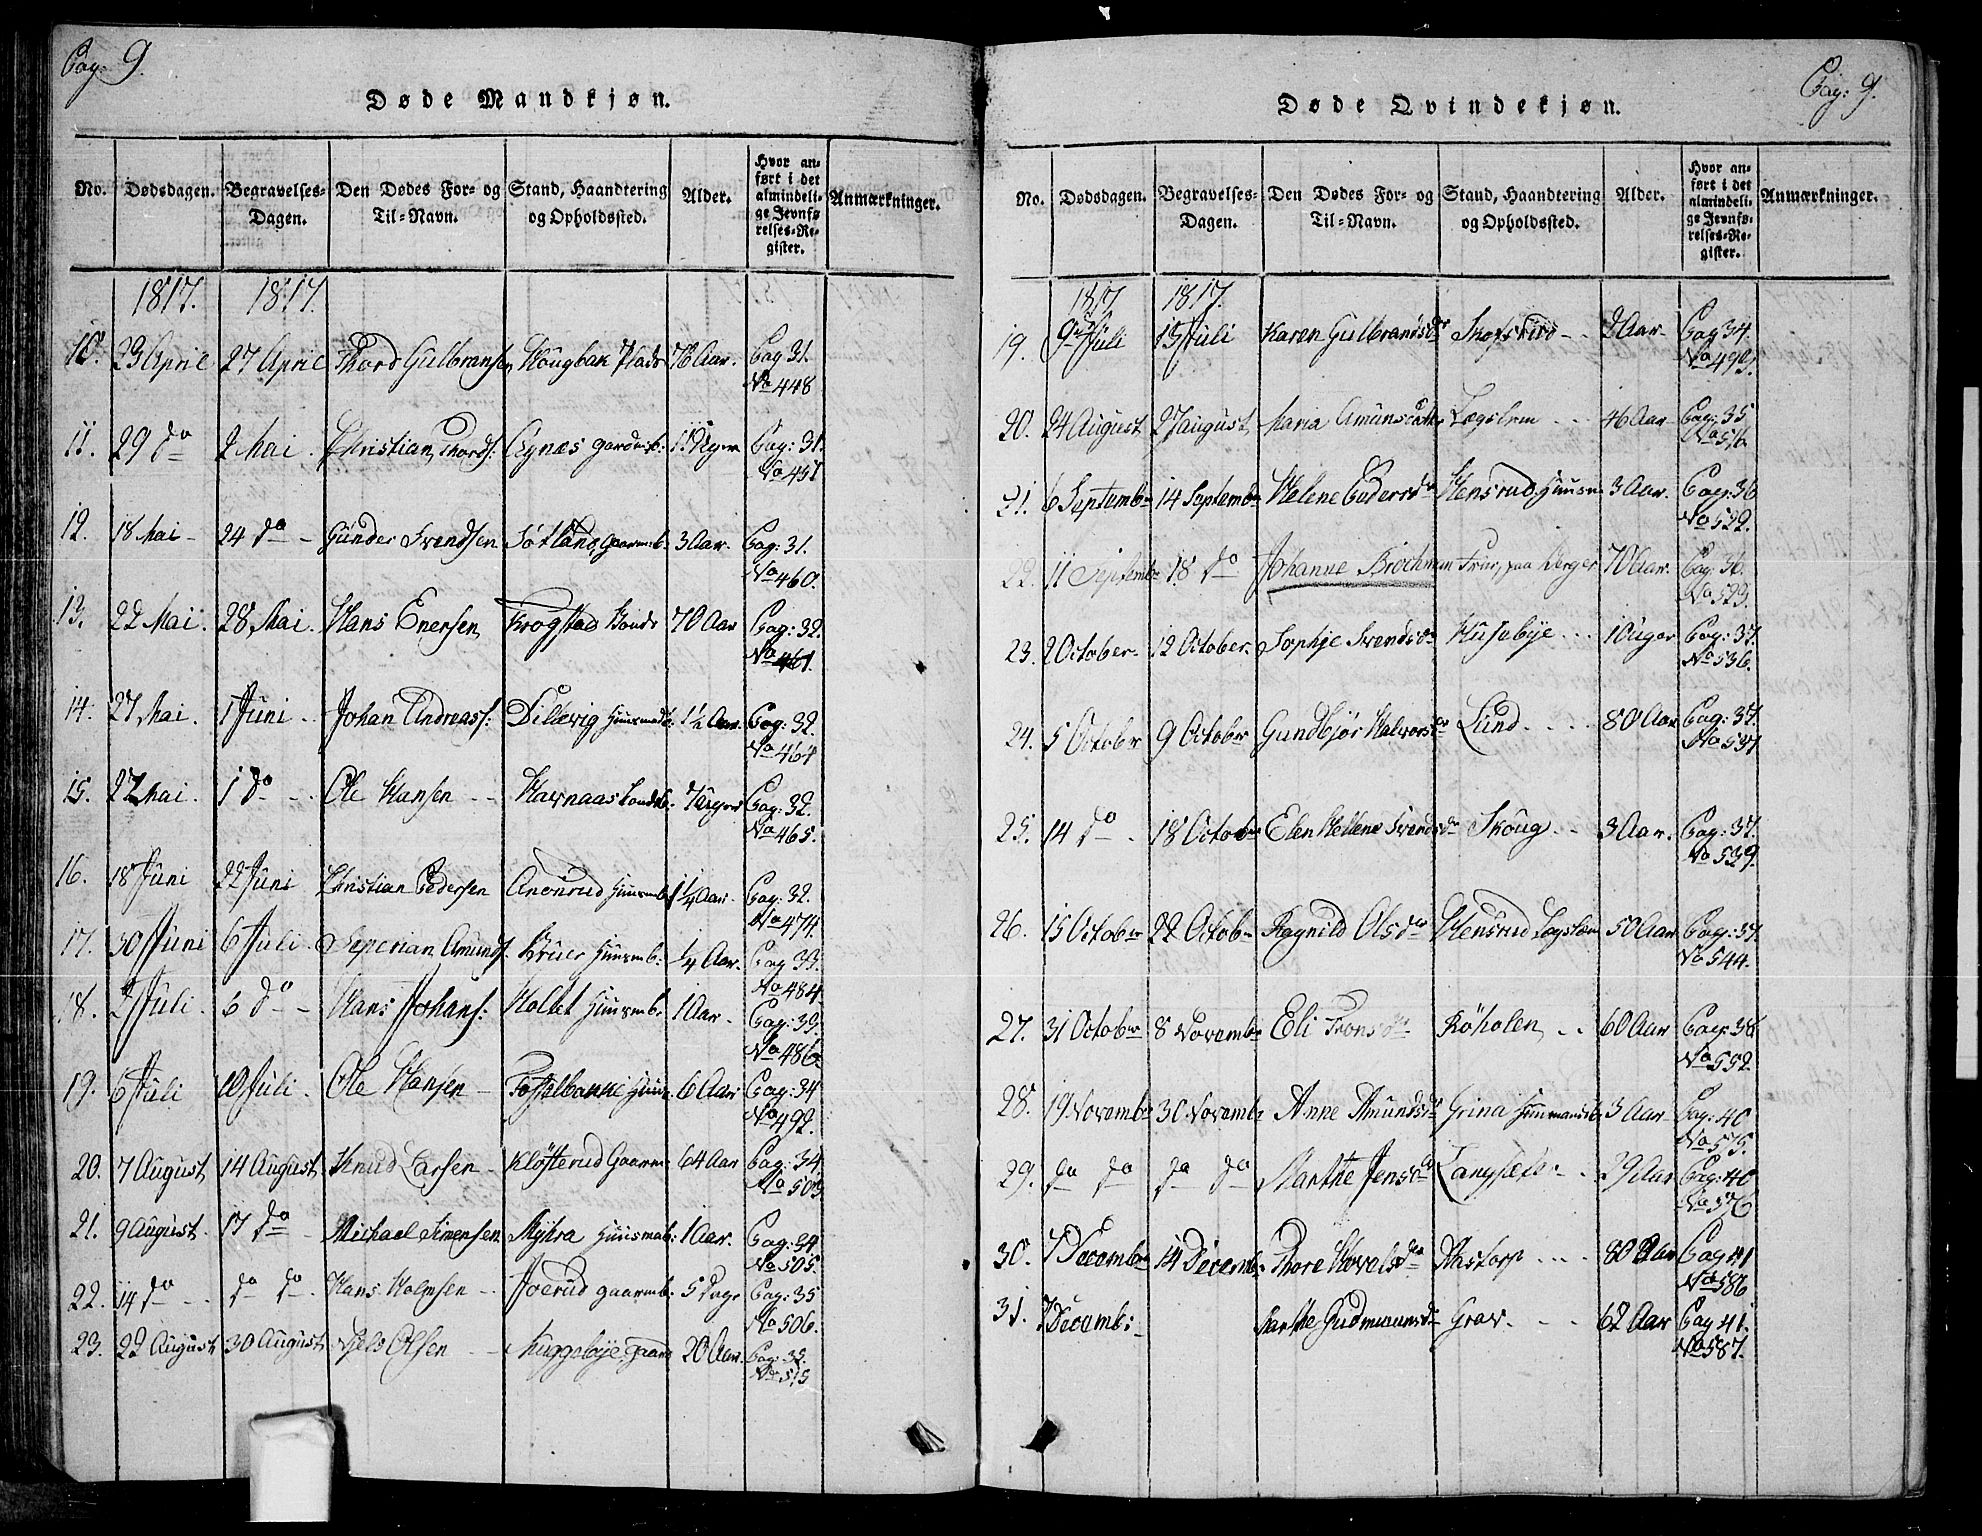 Pag: 9.
Døde Mandkjøn.
No. Dødsdagen. Begravelses-Dagen. Den Dødes For- og Til-Navn. Stand, Haandtering og Opholdssted. Alder. Hvor anført i det almindelige Jevnførelses-Register. Anmærkninger.
1817. 1817.
10. 23 April 27 April Thord Gulbransen Skougbak Plads 76 Aar. Pag 31. No 448
11. 29 do 2 Mai Christian Thords: Aynæs gaardmb: 11 Uger Pag: 31. No 451
12. 18 Mai 24 do Gunder Svendsen Søtland gaarmb: 3 Aar. Pag: 31. No 460.
13. 22 Mai. 28 Mai. Hans Enersen Krogstad Bonde 70 Aar Pag: 32. No 461.
14. 27 Mai. 1 Juni Johan Andreass: Dillevig Huusmb 1½ Aar. Pag: 32. No 464
15. 27 Mai. 1 do Ole Hansen Havnaas 7 Uger Pag: 32. No 465.
16. 18 Juni 22 Juni Christian Pedersen Huusmb 1¼ Aar. Pag: 32. No 474
17. 30 Juni 6 Juli Amunds. Huusmb: ¼ Aar. Pag 33. No 484
18. 2 Juli. 6 do Hans Johans: Holtet Huusmb: 1 Aar Pag: 33. No 486.
19. 6 Juli 10 Juli. Ole Hansen Fosselbakke Huus 6 Aar Pag: 34 No 492.
20. 7 August 14 August Knud Larsen Kløfterud Gaarm: 64 Aar Pag: 34. No 503
21. 9 August 17 do Michael Simensen Myhra Huusmab: 1 Aar. Pag: 34 No 505.
22. 14 do do do Hans Holmsen Joerud gaarmb: 5 Dage Pag: 35 No 506.
23. 22 August 30 August Niels Olsen Muggebye gaard 20 Aar. Pag: 35. No 515
Pag: 9.
Døde Qvindekjøn.
No. Dødsdagen. Begravelses-Dagen. Den Dødes For- og Til-Navn. Stand, Haandtering og Opholdssted. Alder. Hvor anført i det almindelige Jevnførelses-Register. Anmærkninger.
1817 1817.
19. 9 Juli 13 Juli Karen Gulbrandsdr Skofsrud 2 Aar Pag 34. No 493.
20. 24 August 27 august Maria Amunsdatter Lægslem 46 Aar Pag: 35 No 516.
21. 6 Septembr 14 Septembr Helene Pedersdr Stensrud Huusm 3 Aar. Pag: 36 No 522.
22. 11 Septembr 18 do Johanne Brochman Frue, paa Berger 70 Aar. Pag: 36. No 523.
23. 2 October 12 October. Sophje Svendsdr Husebye 10 uger Pag: 37. No 536.
24. 5 Octobr 9 Octobr Gundbjør Halvorsdr Lund 80 Aar Pag: 37. No 537
25. 14 do 18 Octobr Elen Hellene Svendsdr Skoug 3 Aar. Pag: 37. No 539.
26. 15 Octobr 22 Octobr Ragnild Olsdr Stensrud Lægslem 50 Aar Pag: 37. No 544.
27. 31 Octobr 8 Novembr Eli Tronsdr Røholen 60 Aar Pag: 38. No 552.
28. 19 Novembr 30 Novembr Anne Amundsdr Grina Huusmands 3 Aar. Pag: 40 No 575.
29. do do do do Marthe Jensdr Langsæter 29 Aar Pag: 40 No 576
30. 7 Decembr 14 Decembr Thore Hovelsdr Hastorp 80 Aar Pag 41 No 586
31. 7 Decemb: Marthe Gudmunnsdr Grav 62 Aar Pag 41. No 587.